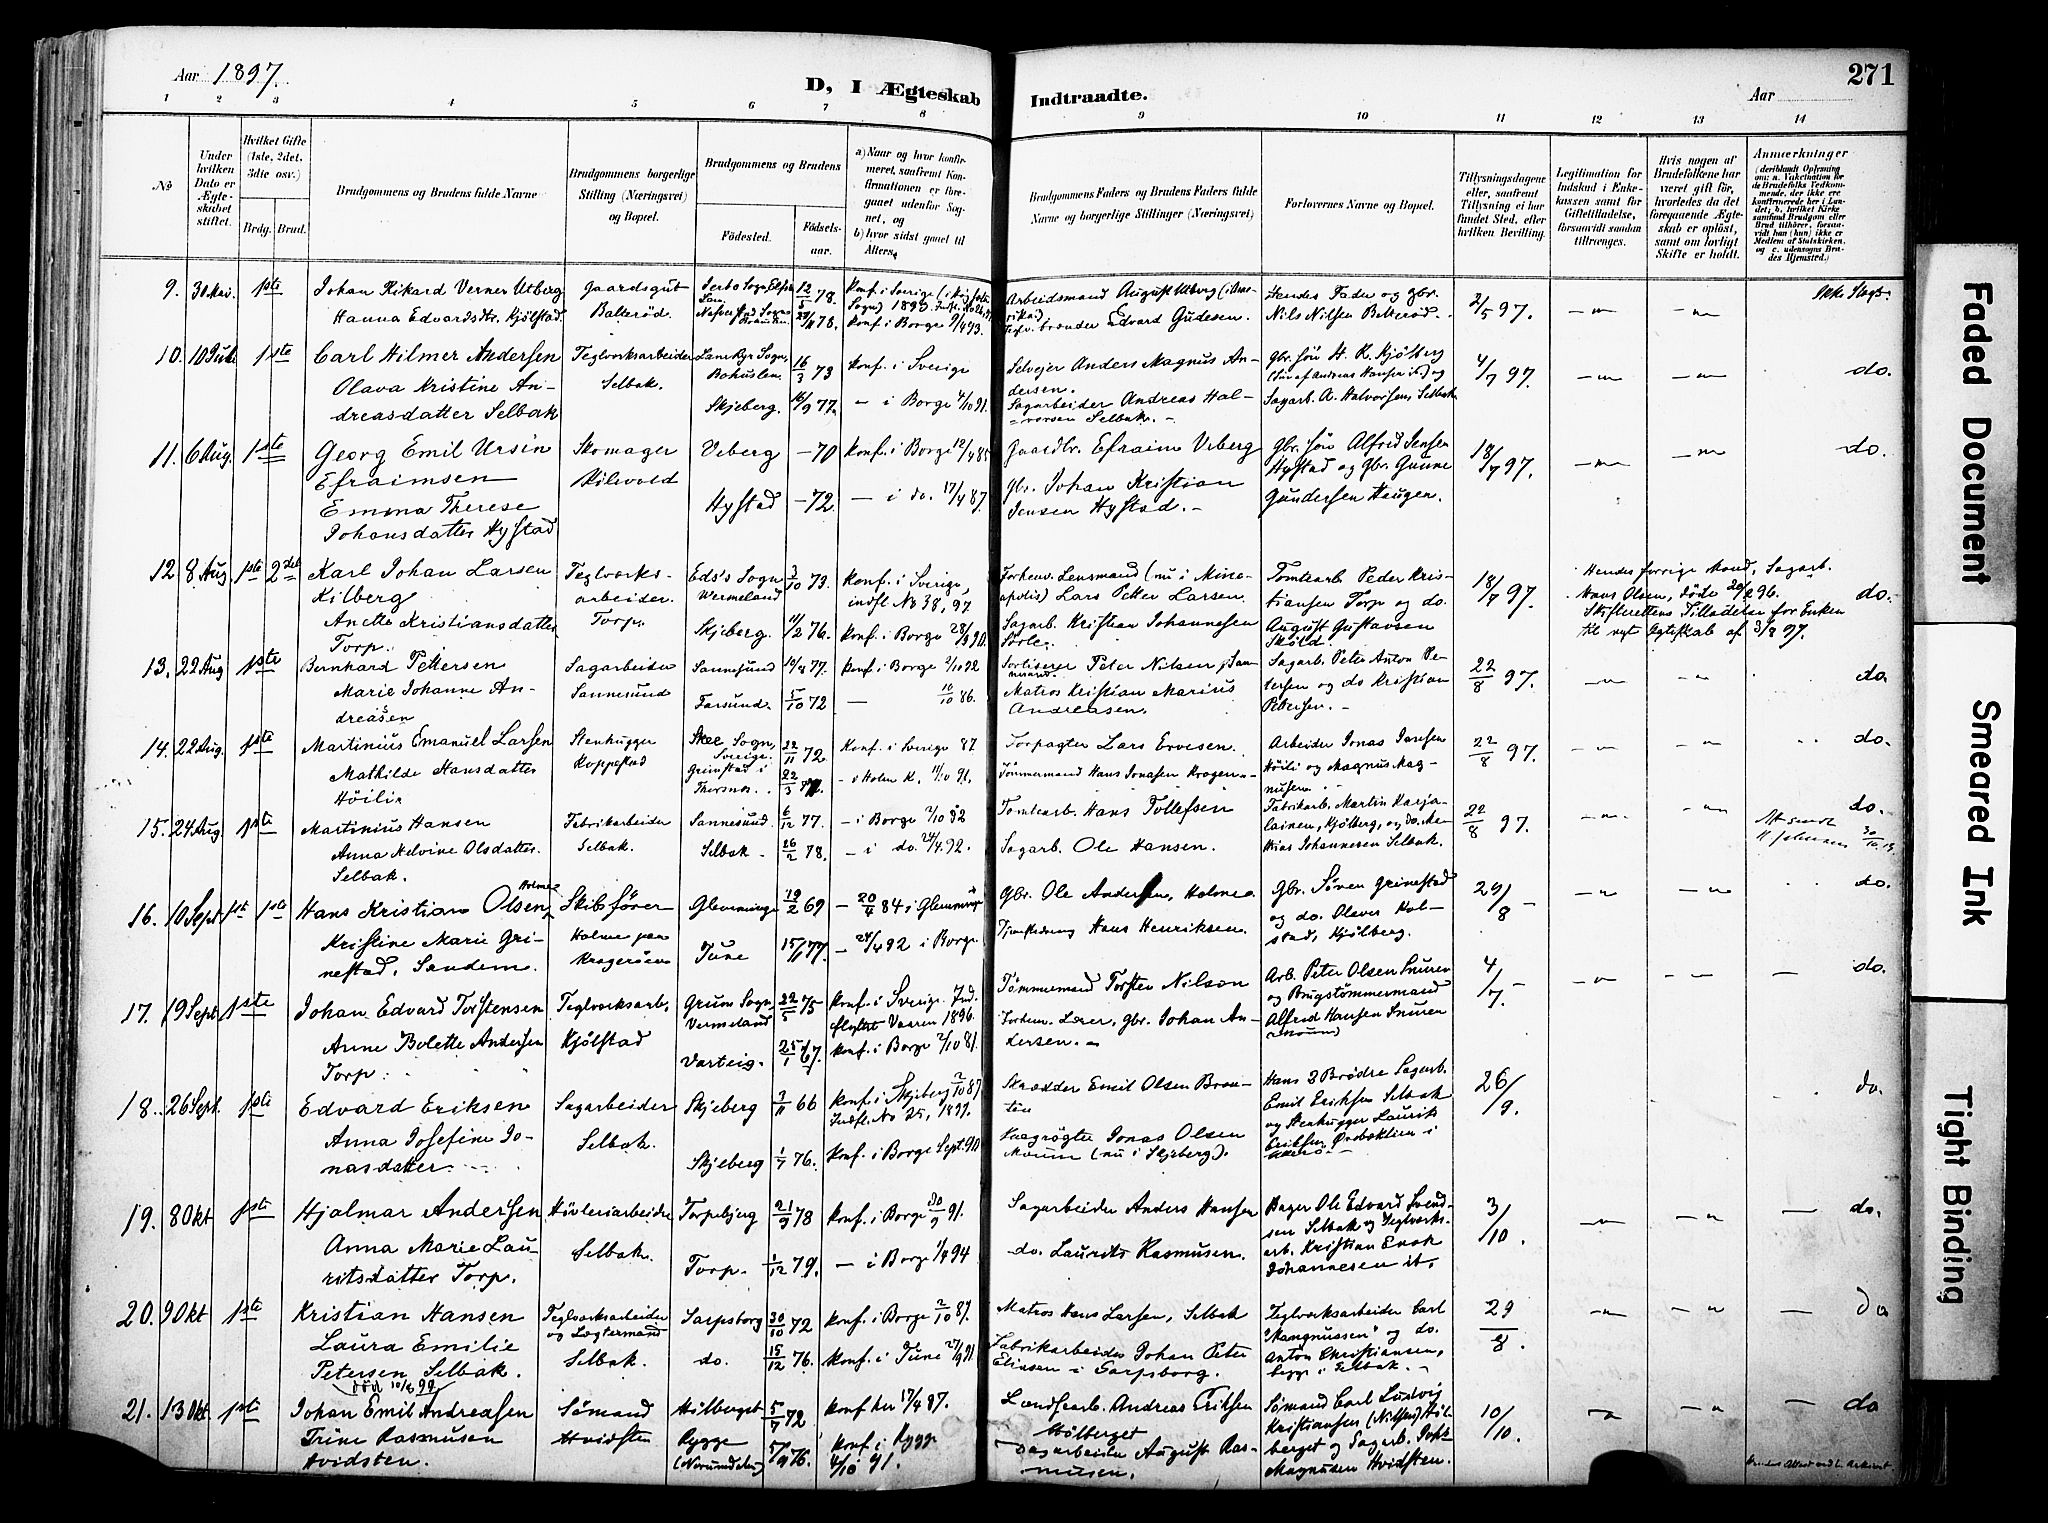 Aar 1897.
D, I Ægteskab Indtraadte.
Aar
271
1 2 3 4 5 6 7 8 9 10 11 12 13 14
No
Under hvilken Dato er Ægteskabet stiftet.
Hvilket Gifte (1ste, 2det, 3die osv.)
Brdg. Brud.
Brudgommens og Brudens fulde Navne
Brudgommens borgerlige Stilling (Næringsvei) og Bopæl.
Brudgommens og Brudens
Fødested.
Fødselsaar.
a) Naar og hvor konfirmeret, saafremt Konfirmationen er foregaaet udenfor Sognet, og
b) hvor sidst gaaet til Alters.
Brudgommens Faders og Brudens Faders fulde Navne og borgerlige Stillinger (Næringsvei)
Forlovernes Navne og Bopæl.
Tillysningsdagene eller, saafremt Tillysning ei har fundet Sted, efter hvilken Bevilling.
Legitimation for Indskud i Enkekassen samt for Giftetilladelse, forsaavidt saadan tiltrænges.
Hvis nogen af Brudefolkene har været gift før, hvorledes da det foregaaende Ægteskab er opløst, samt om lovligt Skifte er holdt.
Anmærkninger
(deriblandt Oplysning om: a. Vakcination for de Brudefolks Vedkommende, der ikke ere konfirmerede her i Landet; b. hvilket Kirkesamfund Brudgom eller Brud tilhører, forsaavidt han (hun) ikke er Medlem af Statskirken, og c. udensogns Brudes Hjemsted.)
9. 30 Mai. 1ste Johan Rikard Verner Utberg Gaardsgut 12/5 78. Konf. i Sverige Arbeidsmand August Utberg Hendes Fader og gbr. 2/5 97.
Hanna Edvardsdtr. Kjølstad. Balterød. konf. i Borge 9/4 93. Edvard Gudesen. Nils Nilsen Balterød.
10. 10 Juli 1ste Carl Hilmer Andersen Teglverksarbeider Lane Ryr Sogn, 16/3 73 Konf. i Sverige Selveier Anders Magnus An- gbr. Søn H. R. Kjølberg 4/7 97. do.
Olava Kristine An- Selbak. Bohuslen. dersen.
dreasdatter Selbak Skjeberg. 77. — i Borge 4/10 91. Sagarbeider Andreas Hal- Sagarb. A. Halvorsen Selbak
vorsen Selbak.
11. 6 Aug. 1ste Georg Emil Ursin Skomager Viberg — 70 konf. i Borge 12/4 85 Gaardbr. Efraim Viberg Gbr. Søn Alfred Jensen 18/7 97. do.
Efraimsen Kilevold Hystad og Gbr. Gunne
Emma Therese Hystad — 72. — i do. 17/4 87. gbr. Johan Kristian Gundersen Haugen.
Johansdatter Hystad Jensen Hystad.
12 8 Aug 1ste 2det Karl Johan Larsen Teglverks- Eds's Sogn 3/10 73. konf. i Sverige, Forhenv. Lensmand (nu i Mine- Tomtearb. Peder Kris- 18/7 97. Hendes forrige Mand, Sagarb.
Kilberg arbeider. Wermeland indfl No 38, 97. apolis) Lars Petter Larsen. tiansen Torp og do. Hans Olsen, døde 96. do.
Anette Kristiansdatter Torp. Skjeberg. 11/2 76. konf. i Borge 28/9 90. Sagarb. Kristian Johannesen August Gustavsen Skifterettens Tilladelse for Enken
Torp. Skøld. til nyt Ægteskab af 97.
13. 22 Aug 1ste Bernhard Pettersen Sagarbeider Sannesund 77. konf. i Borge 2/10 92 Sortiserer Peter Nilsen Sagarb. Peter Anton Pe- 22/8 97. do.
Marie Johanne An- Sannesund Farsund. 5/10 72 — 10/10 86. Matros Kristian Marius tersen og do Kristian
dreasen Andreasen. Pettersen.
14. 22 Aug. 1ste Martinius Emanuel Larsen Stenhugger Skee Sogn, Sverige. 22/11 72. Konf. i Sverige 87 Torpagter Lars Evesen. Arbeider Jonas Jansen 22/8 97. do.
Mathilde Hansdatter Hoppestad Grimstad i 22/3 i Holm K. 11/10 91. Tømmermand Hans Jonasen Høili og Magnus Mag-
Høili. nusen.
15. 24 Aug 1ste Martinius Hansen Fabrikarbeider Sannesund. 6/12 77. — i Borge 2/10 92 Tomtearb. Hans Tollefsen Fabrikarb. Martin 22/8 97. do.
Anna Helvine Olsdatter. Selbak. Selbak. 26/2 78. — i do. 24/4 92. Sagarb. Ole Hansen. Johannesen Selbak.
Selbak.
16. 10 Sept 1ste 1ste Hans Kristian Olsen Holme Skibsfører Glemminge 19/2 69 — 20/4 84 i Glemminge Gbr. Ole Andersen, Holme. Gbr. Søren Grimestad 29/8 do.
Kristine Marie Gri- Holme paa og do. Olaves Hol-
nestad, Sandem. Kragerøen Tune 77. — 24/4 92 i Borge. Hans Henriksen. stad, Kjølberg.
17. 19 Sept 1ste Johan Edvard Torstensen Teglverksarb. Grums Sogn, Vermeland 22/5 75 konf. i Sverige. Ind- flyttet Vaaren 1896. Tømmermand Torsten Nilson Arb. Peter Olsen og Brugstømmermand 4/7. do.
Anne Bolette Andersen Kjølstad Varteig. 25/1 67. konf. i Borge 2/10 81. Forhenv. Lærer, gbr. Johan An- Alfred Hansen
Torp. dersen.
18. 26 Sept. 1ste Edvard Eriksen Sagarbeider Skjeberg 7/11 66 konf. i Skjeberg 2/10 87 Skrædder Emil Olsen Braa- Hans 2 Brødre Sagarb. 26/9. do.
Indfl. No 25, 1897. ten Emil Eriksen Selbak
Anna Josefine Jo- Selbak. Skjeberg 1/7 76. konf. i Borge Sept. 90 Kvægrøgter Jonas Olsen og Stenhugger Lauritz
nasdatter. (nu i Skjeberg). Eriksen
19. 8 Okt 1ste Hjalmar Andersen Høvleriarbeider Torpebjerg 21/9 78 konf. i Borge 91. Sagarbeider Anders Hansen Bager Ole Edvard Svend- 3/10. do.
Anna Marie Lau- Selbak. Torp. 1/12 79. — i Borge 94 do. Laurits Rasmusen. sen Selbak og Teglverks-
ritsdatter Torp. arb. Kristian Enok
Johannesen ib.
20. 9 Okt 1ste Kristian Hansen Teglverksarbeider Sarpsborg 30/10 72 konf. i Borge 2/10 87. Matros Hans Larsen, Selbak Teglverksarbeider Carl 29/8. do
Laura Emilie og Løgtermand "Mangnussen" og do.
Petersen Selbak. Selbak. do. 15/12 76. konf. i Tune 27/9 91. Fabrikarbeider Johan Peter Anton Christiansen,
død 10/8 99 Eliasen i Sarpsborg. begge i Selbak.
21. 13 Okt 1ste Johan Emil Andreasen Sømand Hølberget 5/7 72 Konf her 17/4 87. Landsarb. Andreas Eriksen Sømand Carl Ludvig 10/10. do
Trine Rasmusen Hvidsten Rygge 5/9 76. konf. i Rygge Hølberget Kristiansen (Nilsen) Høl-
Hvidsten. 4/10 91. Sagarbeider August Ras- berget og Sagarb. Johs
musen. Magnusen Hvidsten.
Faded Document
Smeared Ink
Tight Binding